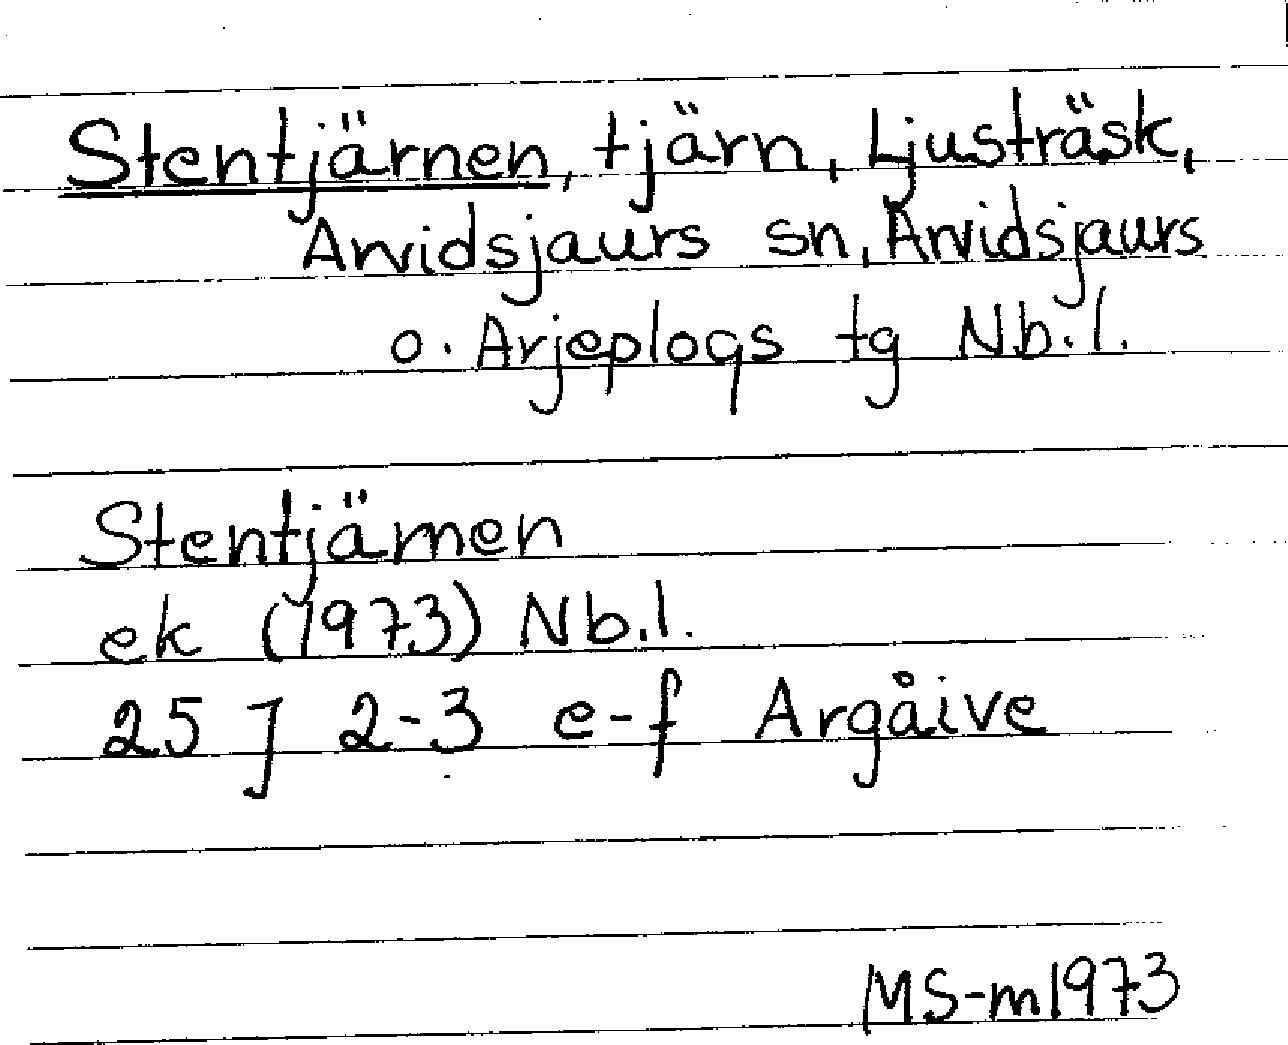 Stentjärnen, tjärn, Ljusträsk,
Arvidsjaurs sn, Arvidsjaurs
o. Arjeplogs tg Nb.l.
Stentjärnen
ek (1973) Nb.l.
25 J 2-3 e-f Argåive
MS-m1973